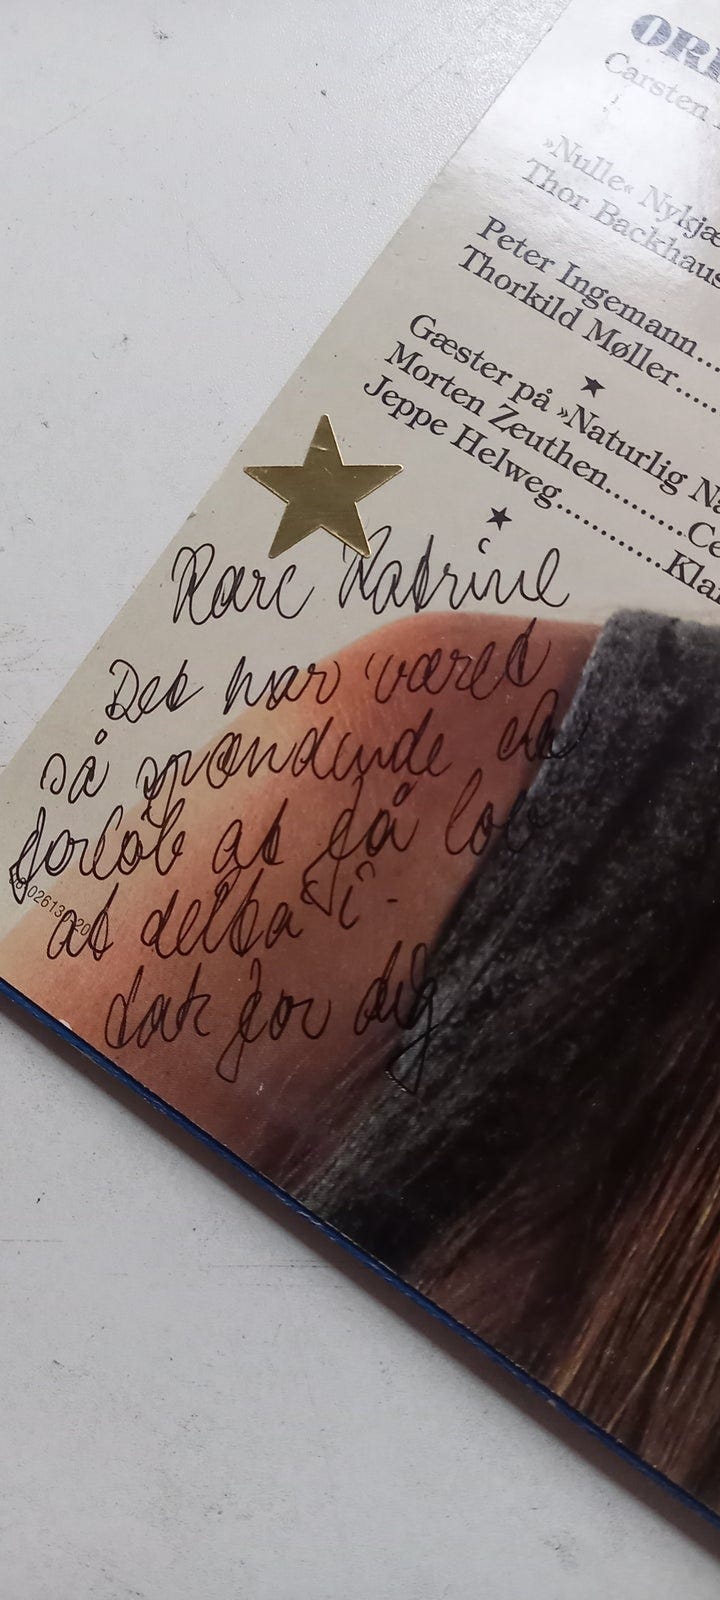 Carsten
»Nulle« Nykjæ
Thor Backhaus
Peter Ingemann...
Thorkild Møller.....
★
Gæster på »Naturlig Na
Morten Zeuthen.........Ce
Jeppe Helweg............Klar
★
Kære Katrine
Det har været
så spændende et
forløb at få lov
at delta i -
tak for dig